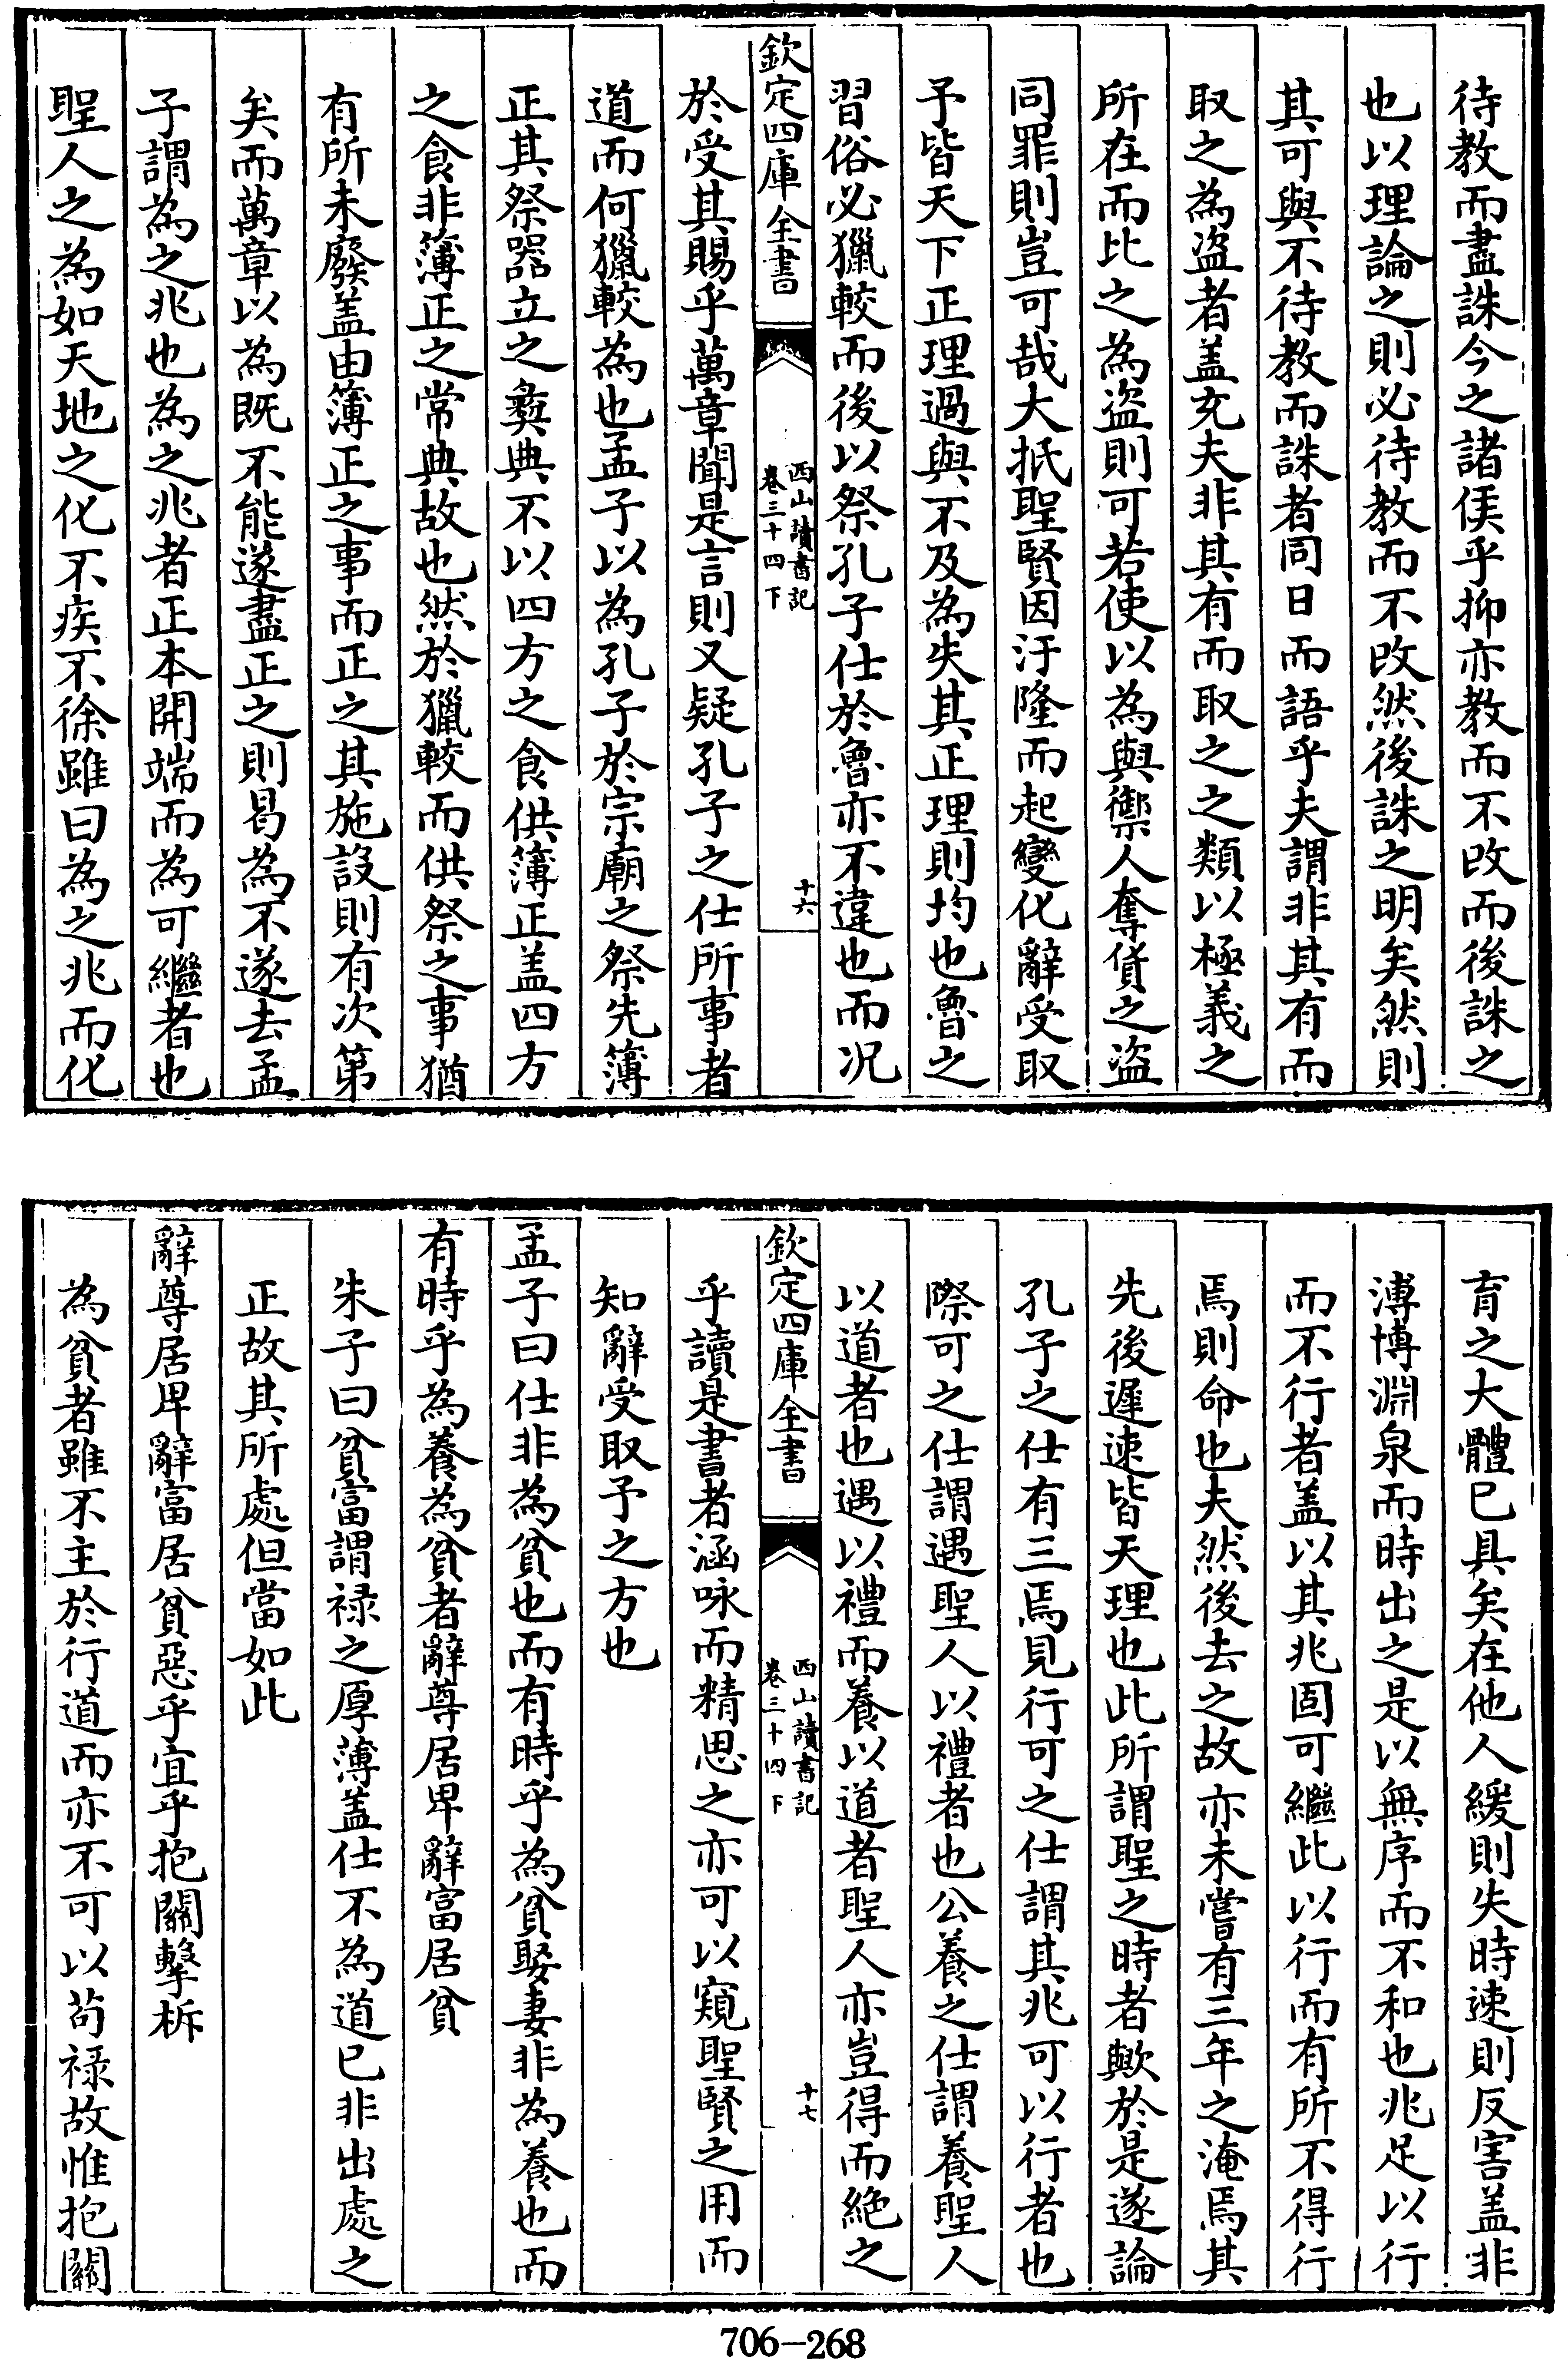 待教而盡誅今之諸侯乎抑亦教而不改而後誅之
也以理論之則必待教而不改然後誅之明矣然則
其可與不待教而誅者同日而語乎夫謂非其有而
取之為盜者盖充夫非其有而取之之類以極義之
所在而比之為盜則可若使以為與禦人奪貨之盜
同罪則豈可哉大抵聖賢因汙隆而起變化辭受取
予皆天下正理過與不及為失其正理則均也魯之
習俗必獵較而後以祭孔子仕於魯亦不違也而况
欽定四庫全書
西山讀書記
卷三十四下
十六
於受其賜乎萬章聞是言則又疑孔子之仕所事者
道而何獵較為也孟子以為孔子於宗廟之祭先簿
正其祭器立之彜典不以四方之食供簿正盖四方
之食非簿正之常典故也然於獵較而供祭之事猶
有所未廢盖由簿正之事而正之其施設則有次第
矣而萬章以為既不能遂盡正之則曷為不遂去孟
子謂為之兆也為之兆者正本開端而為可繼者也
聖人之為如天地之化不疾不徐雖曰為之兆而化
育之大體已具矣在他人緩則失時速則反害盖非
溥博淵泉而時出之是以無序而不和也兆足以行
而不行者盖以其兆固可繼此以行而有所不得行
焉則命也夫然後去之故亦未嘗有三年之淹焉其
先後遲速皆天理也此所謂聖之時者歟於是遂論
孔子之仕有三焉見行可之仕謂其兆可以行者也
際可之仕謂遇聖人以禮者也公養之仕謂養聖人
以道者也遇以禮而養以道者聖人亦豈得而絶之
欽定四庫全書
西山讀書記
卷三十四下
十七
乎讀是書者涵咏而精思之亦可以窺聖賢之用而
知辭受取予之方也
孟子曰仕非為貧也而有時乎為貧娶妻非為養也而
有時乎為養為貧者辭尊居卑辭富居貧
朱子曰貧富謂禄之厚薄盖仕不為道已非出處之
正故其所處但當如此
辭尊居卑辭富居貧惡乎宜乎抱關擊柝
為貧者雖不主於行道而亦不可以苟禄故惟抱關
706-268